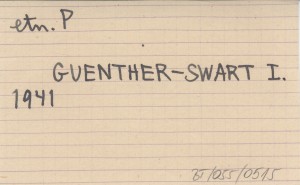 etn. P
GUENTHER-SWART I.
1941
/055/0515